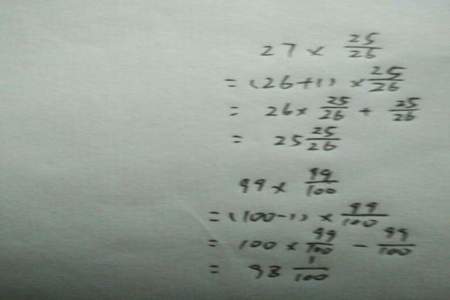 27 × 25/26
= (26+1) × 25/26
= 26 × 25/26 + 25/26
= 25 25/26
99 × 99/100
= (100-1) × 99/100
= 100 × 99/100 - 99/100
= 98 1/100